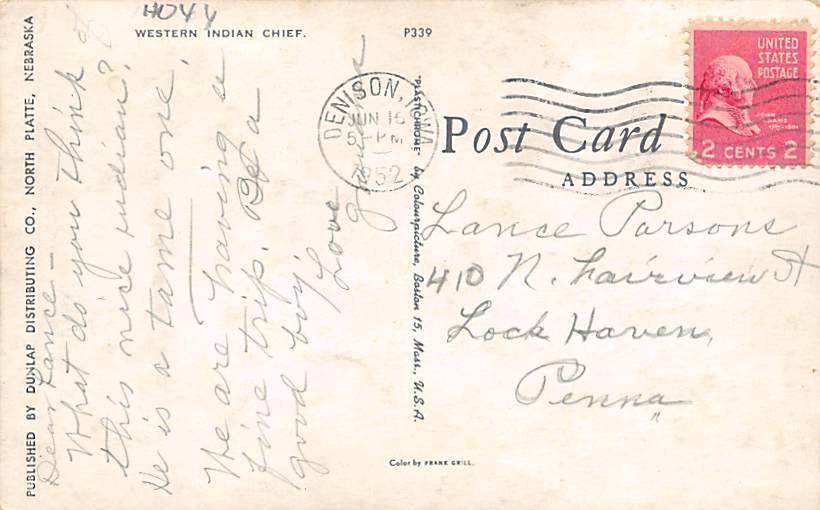 HO44
WESTERN INDIAN CHIEF.
P339
PUBLISHED BY DUNLAP DISTRIBUTING CO., NORTH PLATTE, NEBRASKA
Dear Lance -
What do you think of
this nice indian?
He is a tame one.
We are having a
fine trip. Be a
good boy,
Love
DENISON, IOWA
JUN 16
5-PM
1952
"PLASTICHROME" by Colourpicture, Boston 15, Mass., U.S.A.
Post Card
ADDRESS
UNITED
STATES
POSTAGE
JOHN
ADAMS
1797-1801
2 CENTS 2
Lance Parsons
410 N. Fairview St
Lock Haven,
Penna
Color by FRANK GRILL.